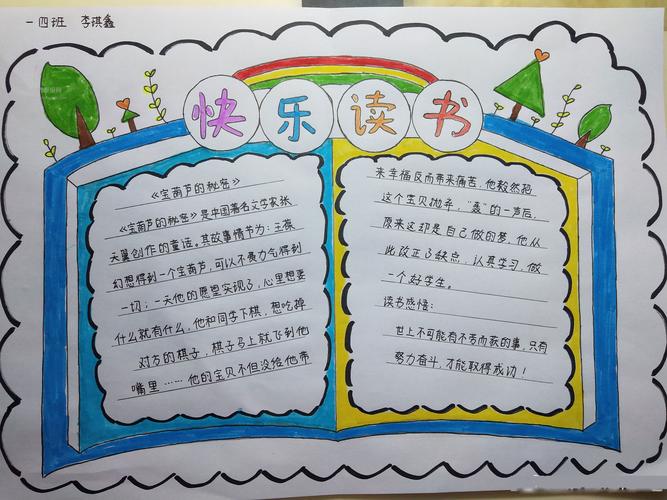 一四班 李淇鑫
快乐读书
《宝葫芦的秘密》
《宝葫芦的秘密》是中国著名文学家张
天翼创作的童话。其故事情节为：王葆
幻想得到一个宝葫芦，可以不费力气得到
一切；一天他的愿望实现了，心里想要
什么就有什么，他和同学下棋，想吃掉
对方的棋子，棋子马上就飞到他
嘴里……他的宝贝不但没给他带
来幸福反而带来痛苦，他毅然把
这个宝贝抛弃，“轰”的一声后，
原来这却是自己做的梦，他从
此改正了缺点，认真学习，做
一个好学生。
读书感悟：
世上不可能有不劳而获的事，只有
努力奋斗，才能取得成功！